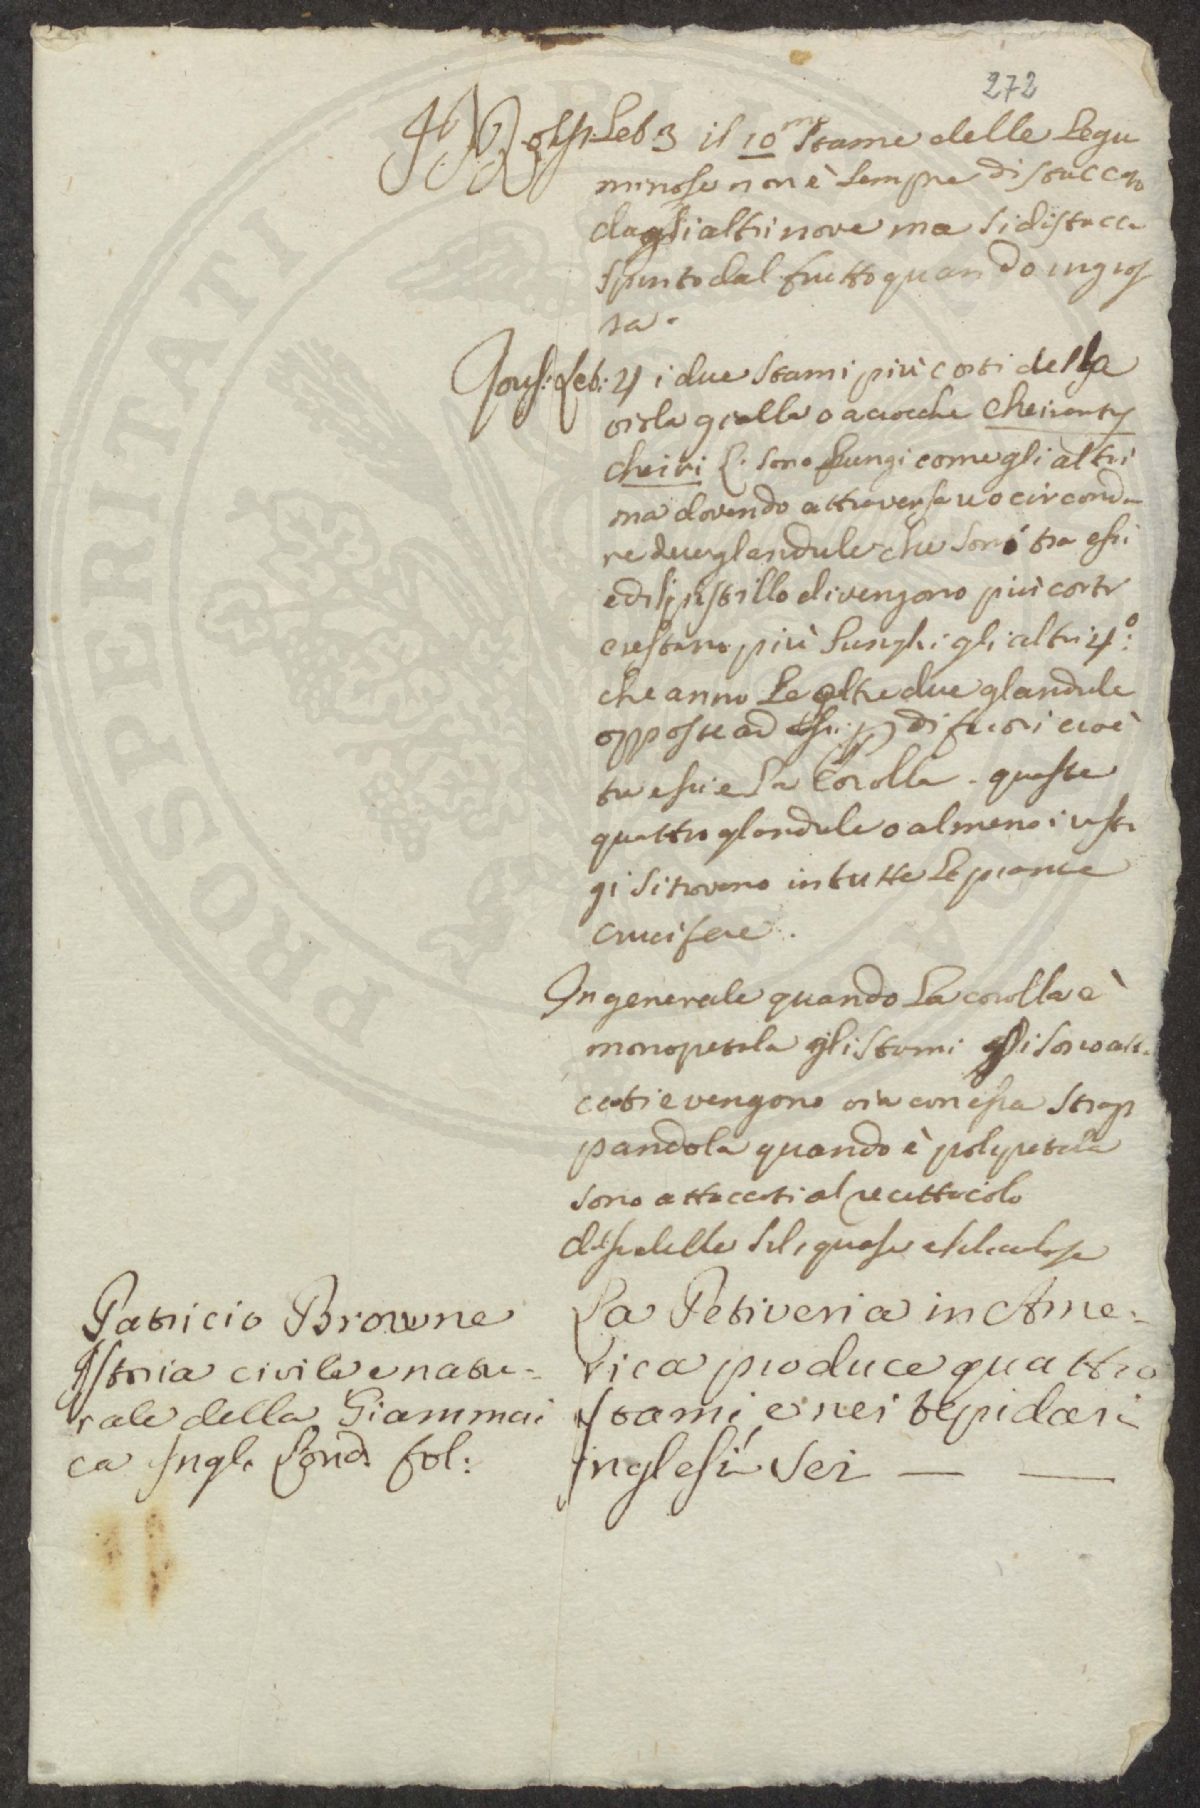 272
Let. 3 il 10mo stame delle Legu
minose non è sempre distaccato
dagli altri nove ma si distacca
spinto dal frutto quando ingros
sa.
Let: 4 i due stami più corti della
viola gialla o a ciocche cheirantus
cheiri L. sono lungi come gli altri
ma dovendo attraversare o circonda
re due glandule che sono tra essi
ed il pistillo divengono più corti
e restano più lunghi gli altri 4º:
che anno Le altre due glandule
opposte ad essi di fuori cioè
tra essi e La Corolla. queste
quattro glandule o almeno i vesti
gi si trovano in tutte Le piante
crucifere.
In generale quando La corolla è
monopetala gli stami gli sono att
cati e vengono via con essa strap
pandola quando è polypetala
sono attaccati al recettacolo
delle siliquose e siliculose
Patricio Browne
Istoria civile e natu-
rale della Giammai
ca Ingl. Lond. fol:
La Petiveria in Ame-
rica produce quattro
stami e nei tepidari
inglesi sei — —
PROSPERITATI